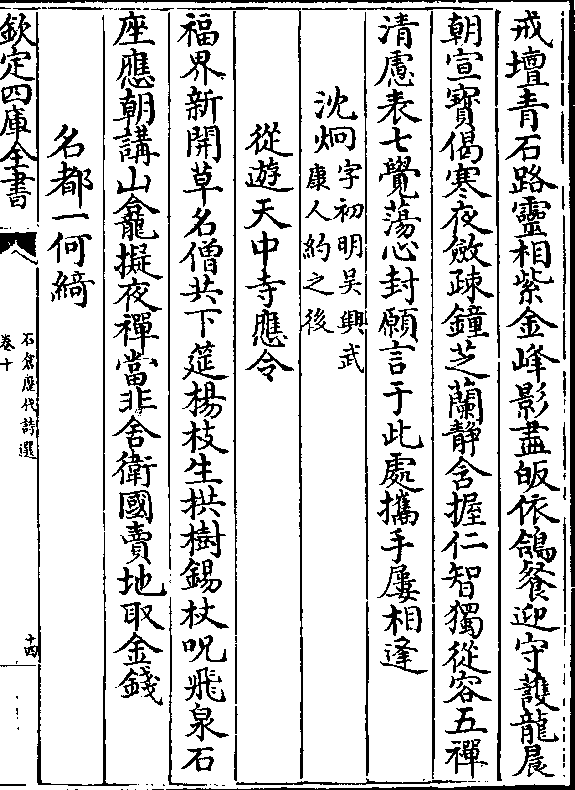 戒壇青石路靈相紫金峰影盡皈依鴿餐迎守護龍晨
朝宣寳偈寒夜斂疎鐘芝蘭静含握仁智獨從容五禪
清慮表七覺蕩心封願言于此處攜手屢相逢
沈炯字初明吴興武
康人約之後
從遊天中寺應令
福界新開草名僧共下筵楊枝生拱樹錫杖呪飛泉石
座應朝講山龕擬夜禪當非舍衛國賣地取金錢
名都一何綺
欽定四庫全書
石倉歷代詩選
卷十
十四